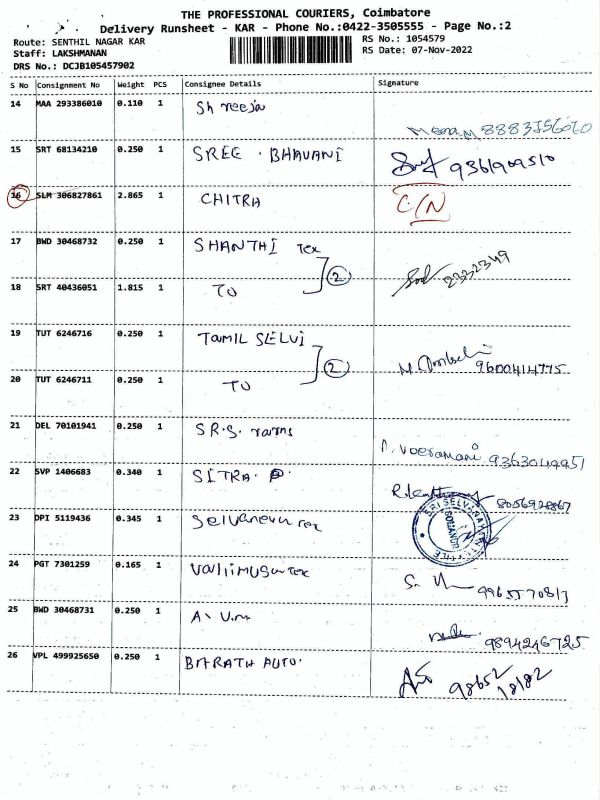 THE PROFESSIONAL COURIERS, Coimbatore
Delivery Runsheet - KAR - Phone No.:0422-3505555 - Page No.:2
Route: SENTHIL NAGAR KAR
RS No.: 1054579
Staff: LAKSHMANAN
RS Date: 07-Nov-2022
DRS No.: DCJB105457902
S No Consignment No Weight PCS Consignee Details Signature
14 MAA 293386010 0.110 1 Shreeja
15 SRT 68134210 0.250 1 SREE . BHAVANI 9361909510
16 SLM 306827861 2.865 1 CHITRA C/N
17 BWD 30468732 0.250 1 SHANTHI Tex
2 2332349
18 SRT 40436051 1.815 1 TO
19 TUT 6246716 0.250 1 TAMIL SELVI
2 9600414775
20 TUT 6246711 0.250 1 TO
21 DEL 70101941 0.250 1 S.R.S. yarns
22 SVP 1406683 0.340 1 SITRA. P. 8056928867
23 DPI 5119436 0.345 1 Tex
SRI SELVANAYAKI TEXTILE
24 PGT 7301259 0.165 1 Vallimugu Tex
25 BWD 30468731 0.250 1 9894246725
26 VPL 499925650 0.250 1 BHARATH AUTO. 98652 18182